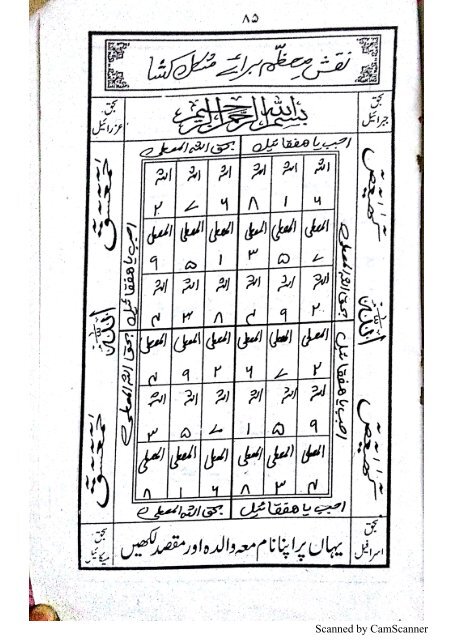 ۸۵
نقش معظم برائے مشکل کشا
بسم اللہ الرحمن الرحیم
بحق جبرائیل
بحق عزرائیل
اجب یا ھفقائیل بحق اللہ المعطی
اللہ اللہ اللہ اللہ اللہ اللہ
۶ ۱ ۸ ۶ ۷ ۲
المعطی المعطی المعطی المعطی المعطی المعطی
۷ ۵ ۳ ۱ ۵ ۹
اللہ اللہ اللہ اللہ اللہ اللہ
۲ ۹ ۴ ۸ ۳ ۴
المعطی المعطی المعطی المعطی المعطی المعطی
۲ ۷ ۶ ۲ ۹ ۴
اللہ اللہ اللہ اللہ اللہ اللہ
۹ ۵ ۱ ۷ ۵ ۳
المعطی المعطی المعطی المعطی المعطی المعطی
۴ ۳ ۸ ۶ ۱ ۸
اجب یا ھفقائیل بحق اللہ المعطی
بحق اللہ المعطی اجب یا ھفقائیل
اجب یا ھفقائیل بحق اللہ المعطی
کھیعص
کھیعص
حمعسق
حمعسق
بحق اسرافیل
یہاں پر اپنا نام معہ والدہ اور مقصد لکھیں
بحق میکائیل
Scanned by CamScanner